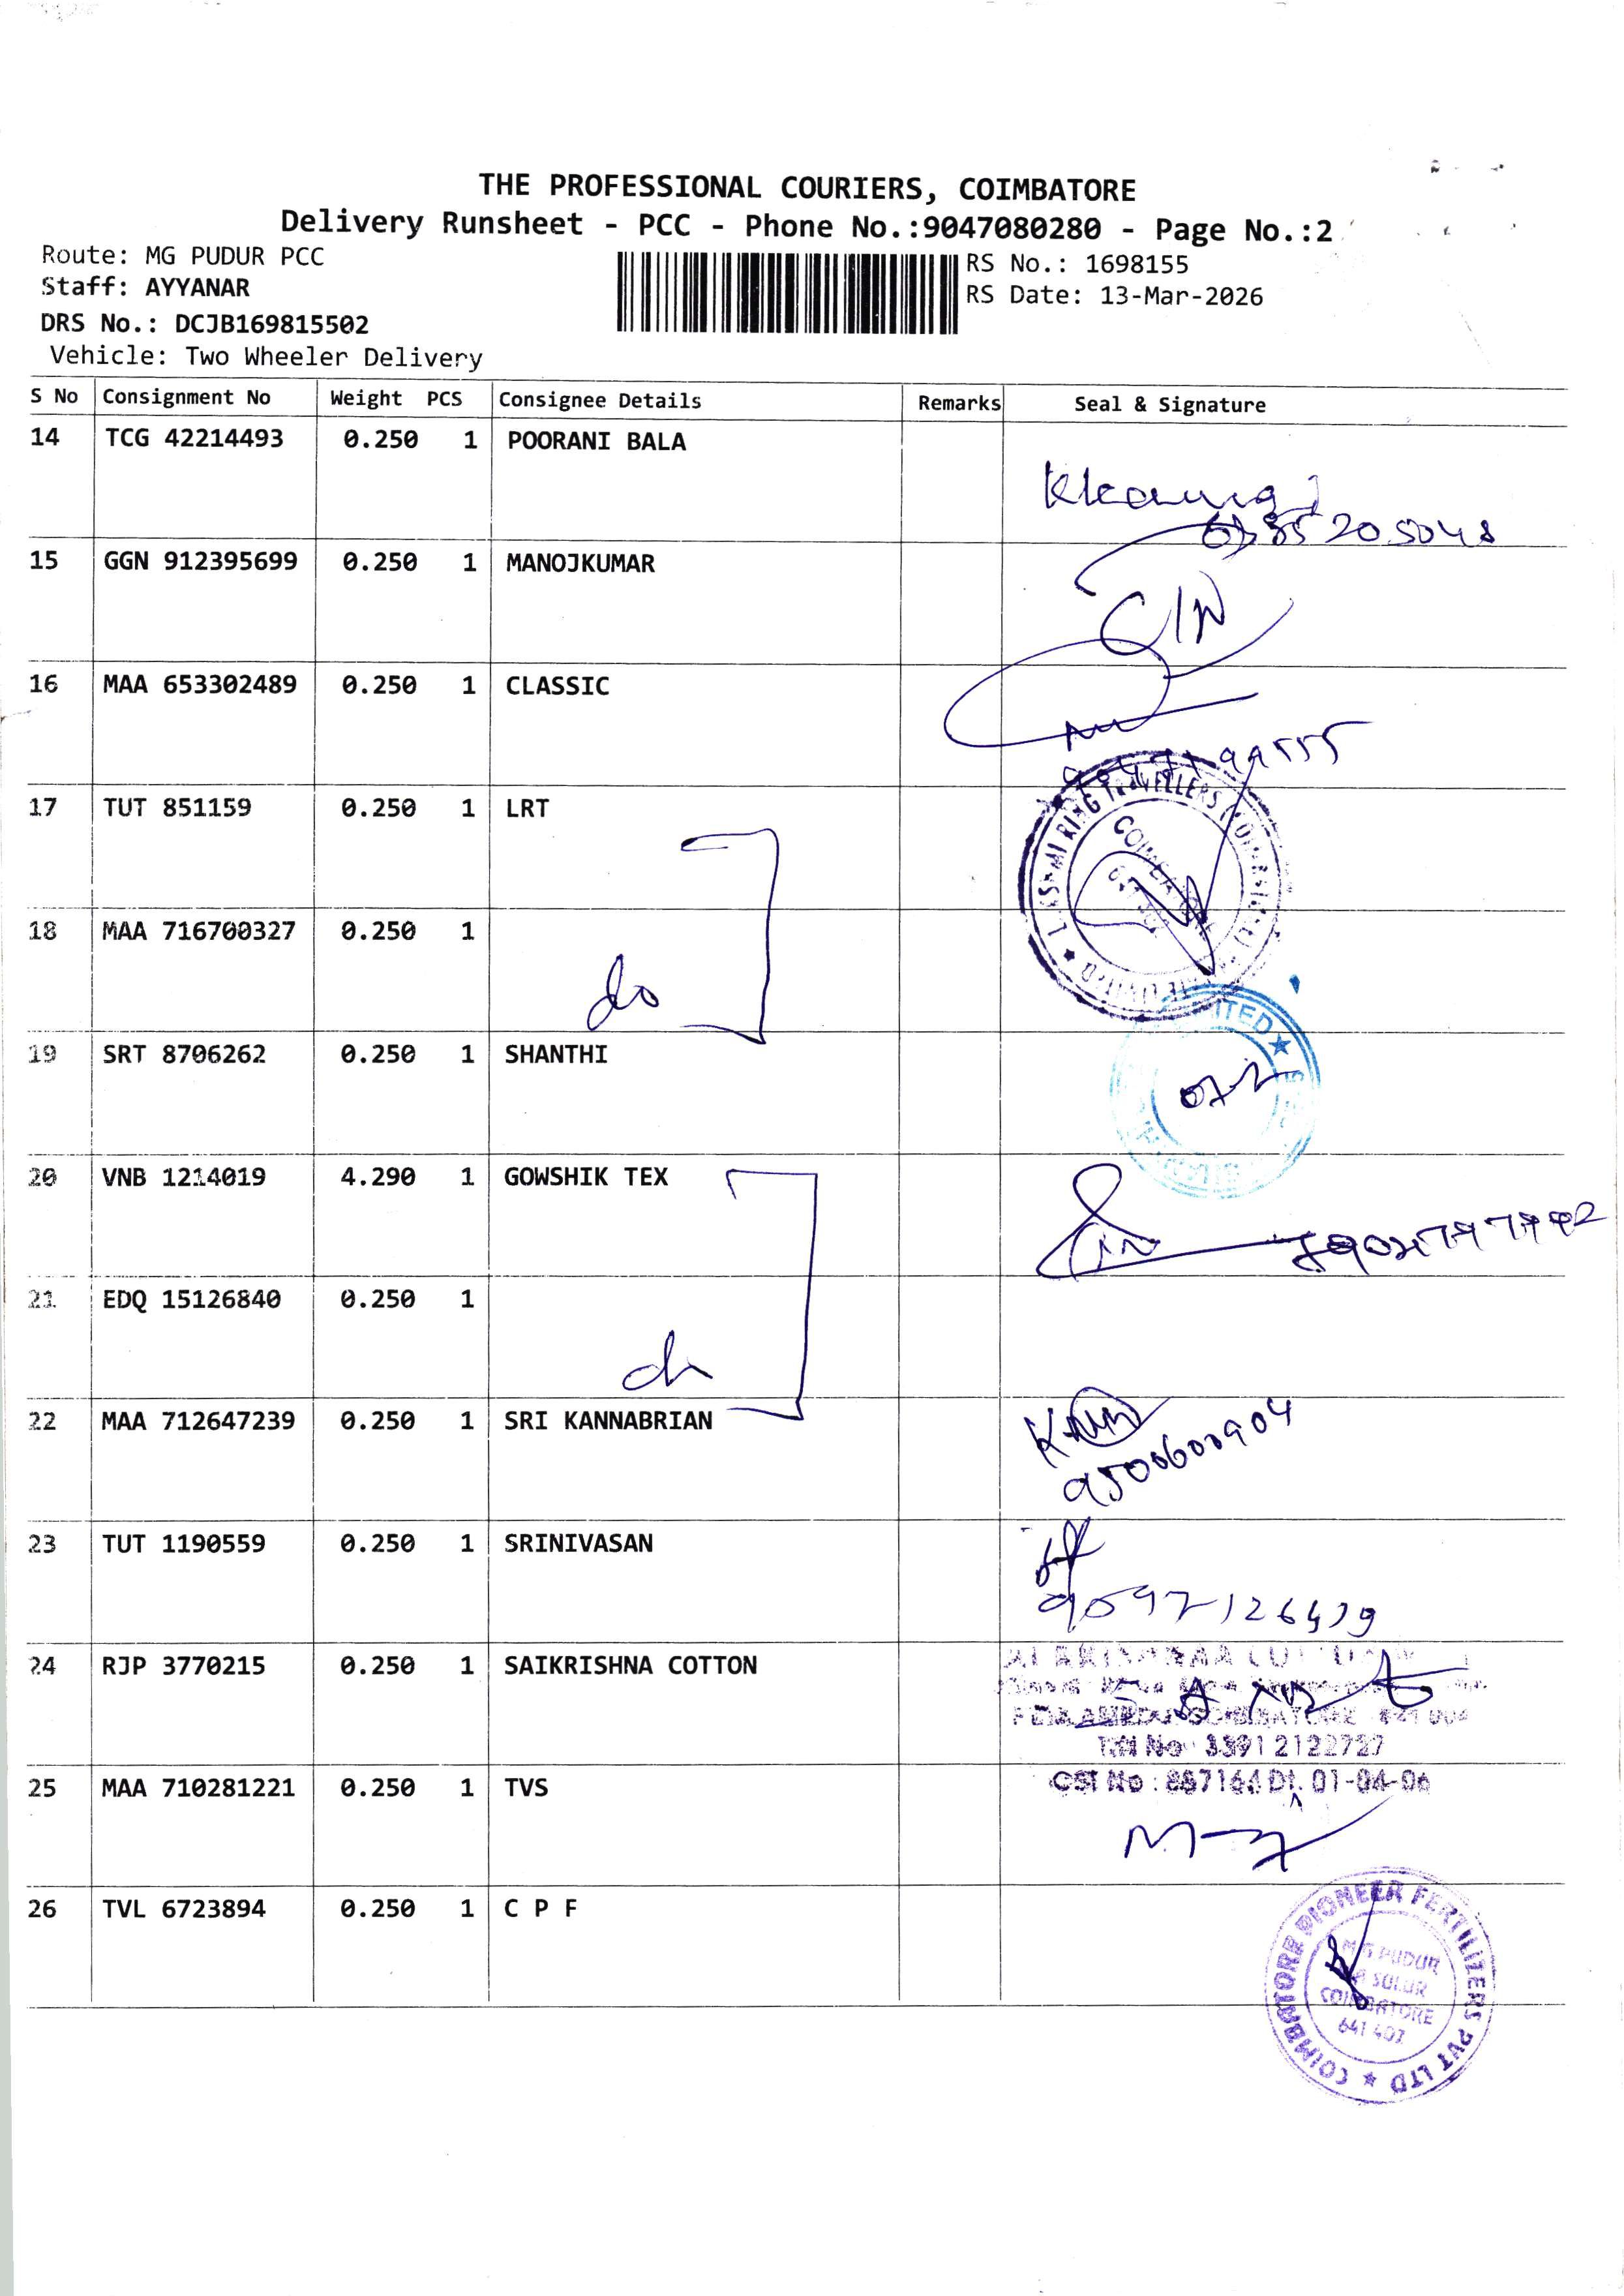 THE PROFESSIONAL COURIERS, COIMBATORE
Delivery Runsheet - PCC - Phone No.:9047080280 - Page No.:2
Route: MG PUDUR PCC
RS No.: 1698155
Staff: AYYANAR
RS Date: 13-Mar-2026
DRS No.: DCJB169815502
Vehicle: Two Wheeler Delivery
S No Consignment No Weight PCS Consignee Details Remarks Seal & Signature
14 TCG 42214493 0.250 1 POORANI BALA
15 GGN 912395699 0.250 1 MANOJKUMAR
16 MAA 653302489 0.250 1 CLASSIC
17 TUT 851159 0.250 1 LRT
18 MAA 716700327 0.250 1
do
19 SRT 8706262 0.250 1 SHANTHI
20 VNB 1214019 4.290 1 GOWSHIK TEX
21 EDQ 15126840 0.250 1
22 MAA 712647239 0.250 1 SRI KANNABRIAN
9500600904
23 TUT 1190559 0.250 1 SRINIVASAN
24 RJP 3770215 0.250 1 SAIKRISHNA COTTON
25 MAA 710281221 0.250 1 TVS
26 TVL 6723894 0.250 1 C P F
COIMBATORE PIONEER FERTILIZERS PVT LTD
PUDUR
SULUR
COIMBATORE